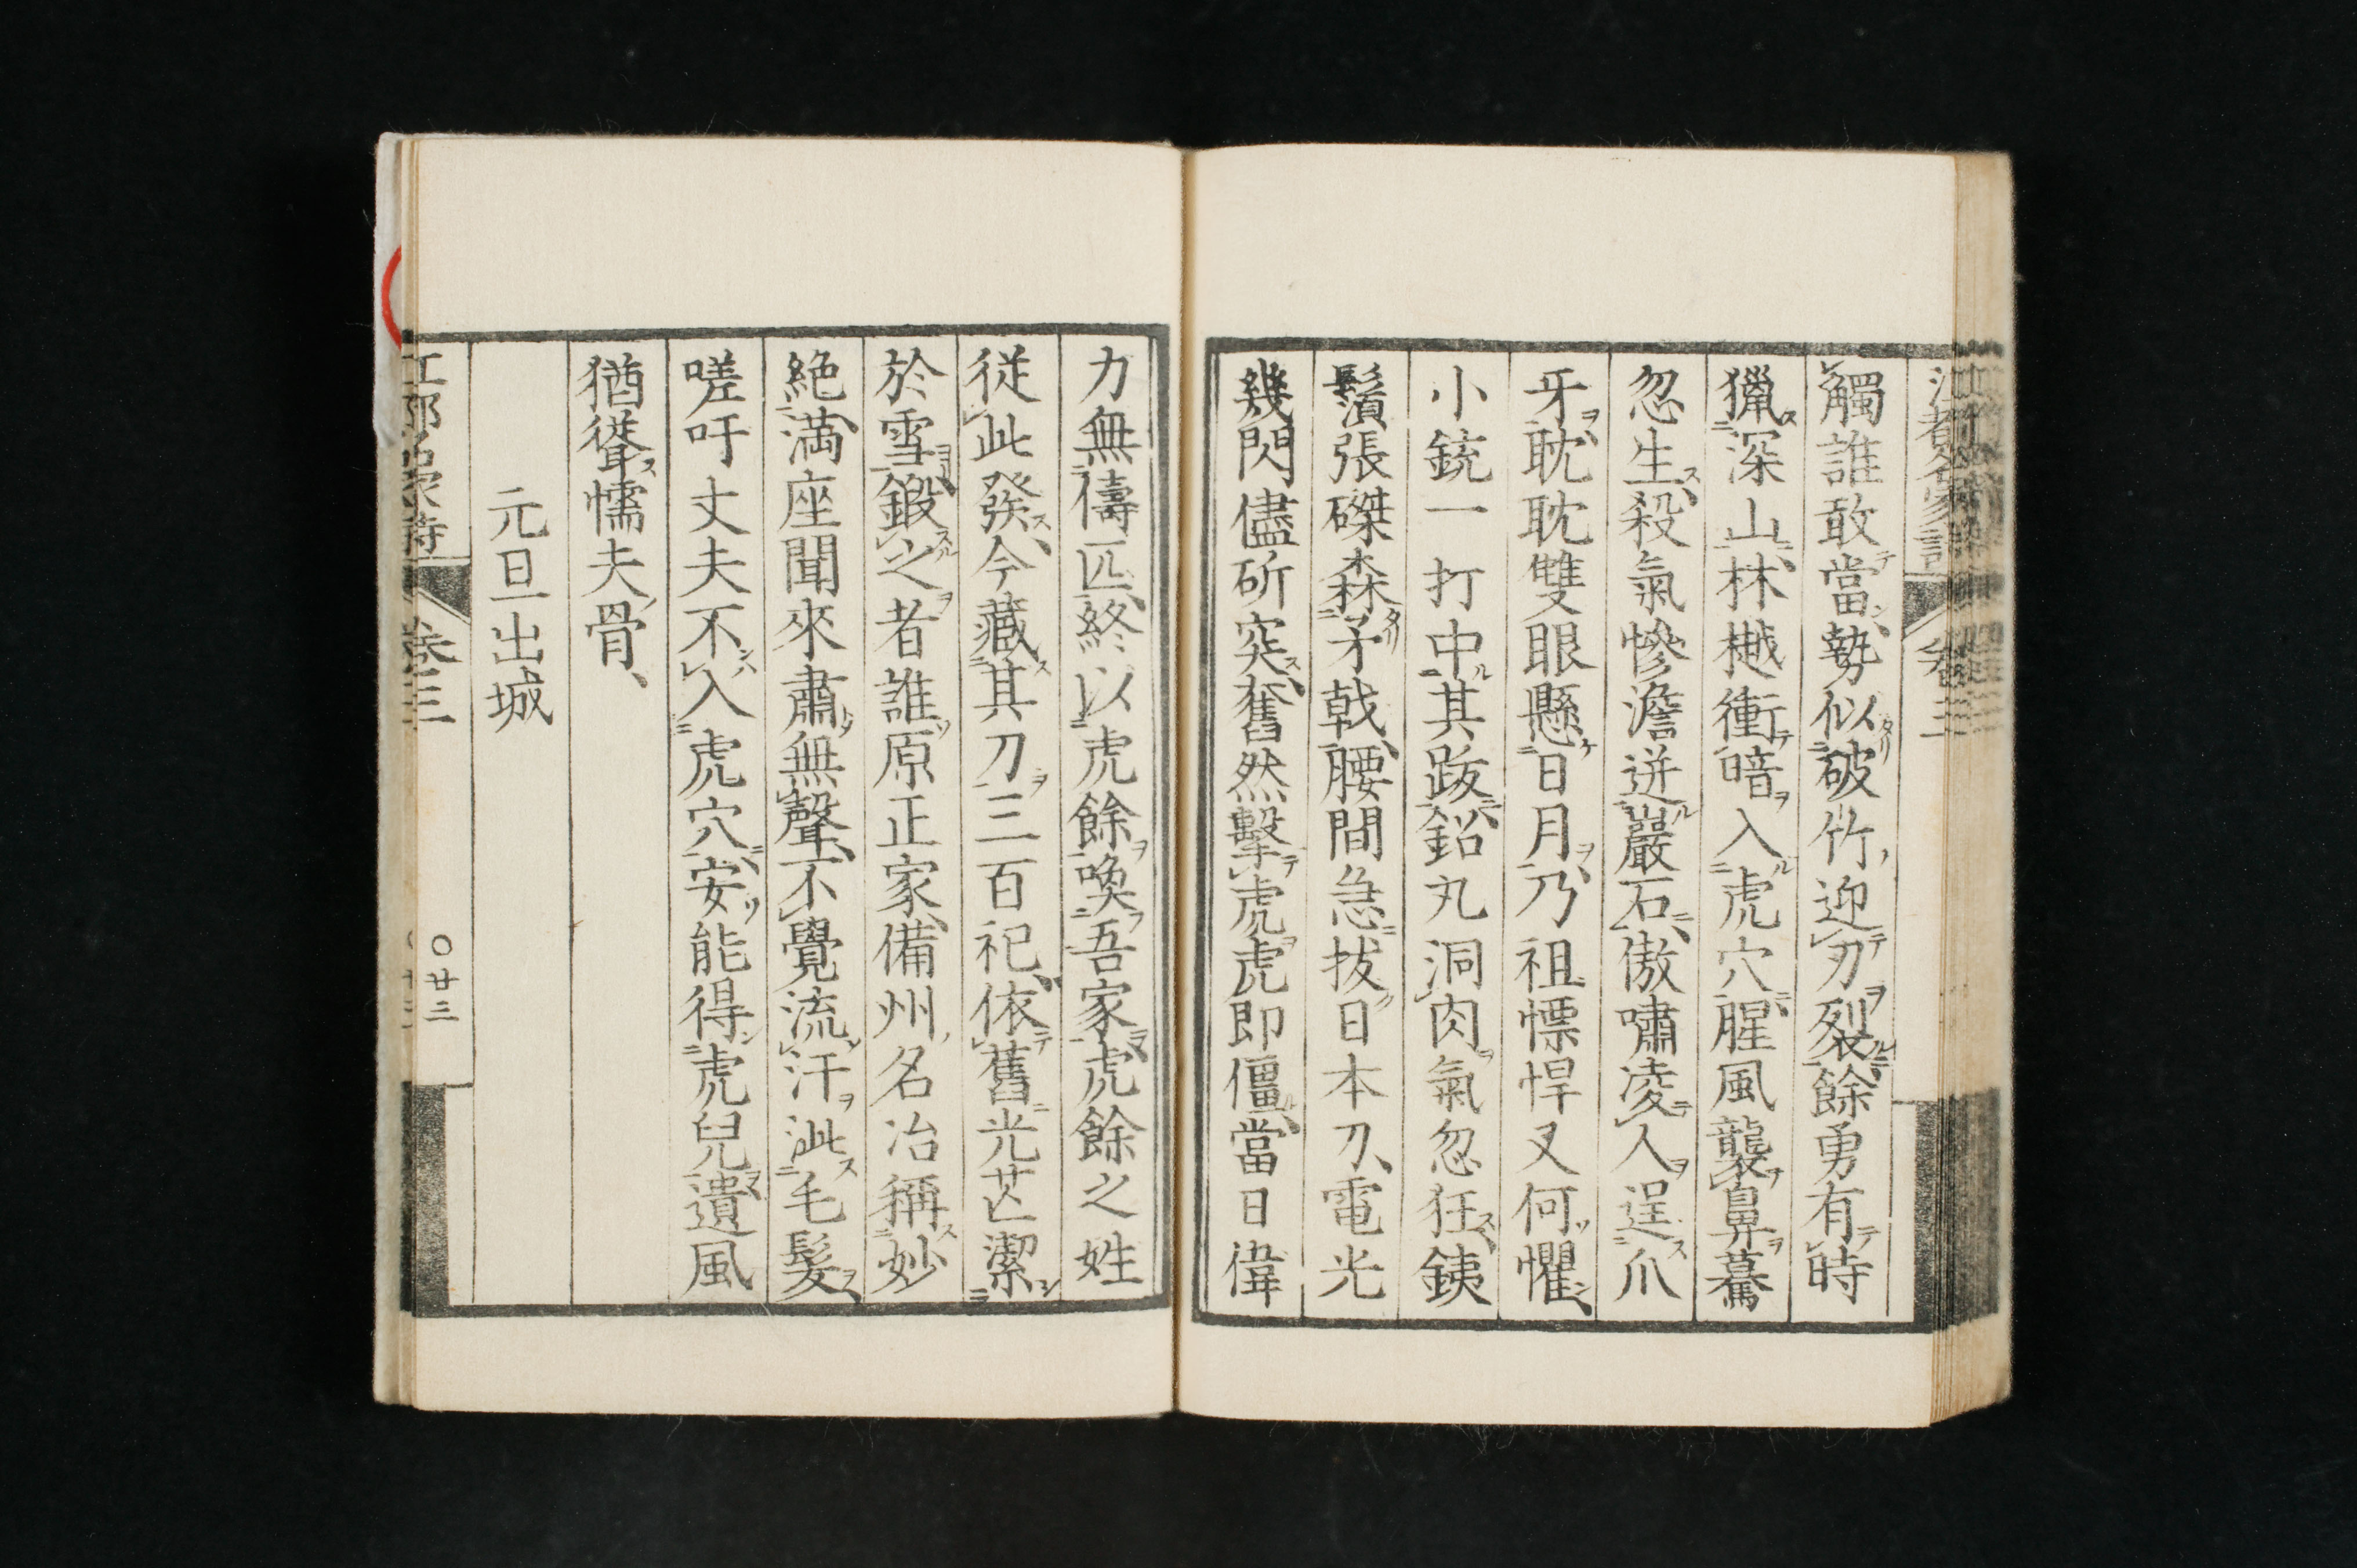 觸誰敢當勢似破竹迎刃裂餘勇有時
獵深山林樾衝暗入虎穴腥風襲鼻驀
忽生殺氣慘澹迸巖石傲嘯凌人逞爪
牙耽耽雙眼懸日月乃祖慓悍又何懼
小銃一打中其跋鉛丸洞肉氣忽狂銕
鬚張磔森矛戟腰間急拔日本刀電光
幾閃儘斫突奮然擊虎虎即僵當日偉
力無儔匹終以虎餘喚吾家虎餘之姓
従此發今藏其刀三百祀依舊光芒潔
於雪鍛之者誰原正家備州名冶稱妙
絶満座聞來肅無聲不覺流汗泚毛髮
嗟吁丈夫不入虎穴安能得虎兒遺風
猶聳懦夫骨
元旦出城
卷三
〇廿三